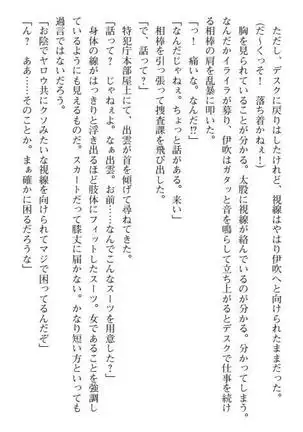 ただし、デスクに戻りはしたけれど、視線はやはり伊吹へと向けられたままだった。
(だ~くっそ! 落ち着かねぇ!)
胸を見られていることが分かる。太股に視線が絡んでいるのが分かる。分かってしまう。
なんだかイライラが募り、伊吹はガタッと音を鳴らして立ち上がるとデスクで仕事を続け
る相棒の肩を乱暴に叩いた。
「っ! 痛いな。なんだ!?」
「なんだじゃねぇ。ちょっと話がある。来い」
相棒を引っ張って捜査課を飛び出した。
「で、話って?」
特犯庁本部屋上にて、出雲が首を傾げて尋ねてきた。
「話って? じゃねぇよ。なぁ出雲。お前……なんでこんなスーツを用意した?」
身体の線がはっきりと浮き出るほど肢体にフィットしたスーツ。女であることを強調し
ているようにも見えるものだ。スカートだって膝丈に届かない。かなり短い方といっても
過言ではないだろう。
「お陰でヤロウ共にクソみたいな視線を向けられてマジで困ってるんだぞ」
「ん? ああ……そのことか。まぁ確かに困るだろうな」